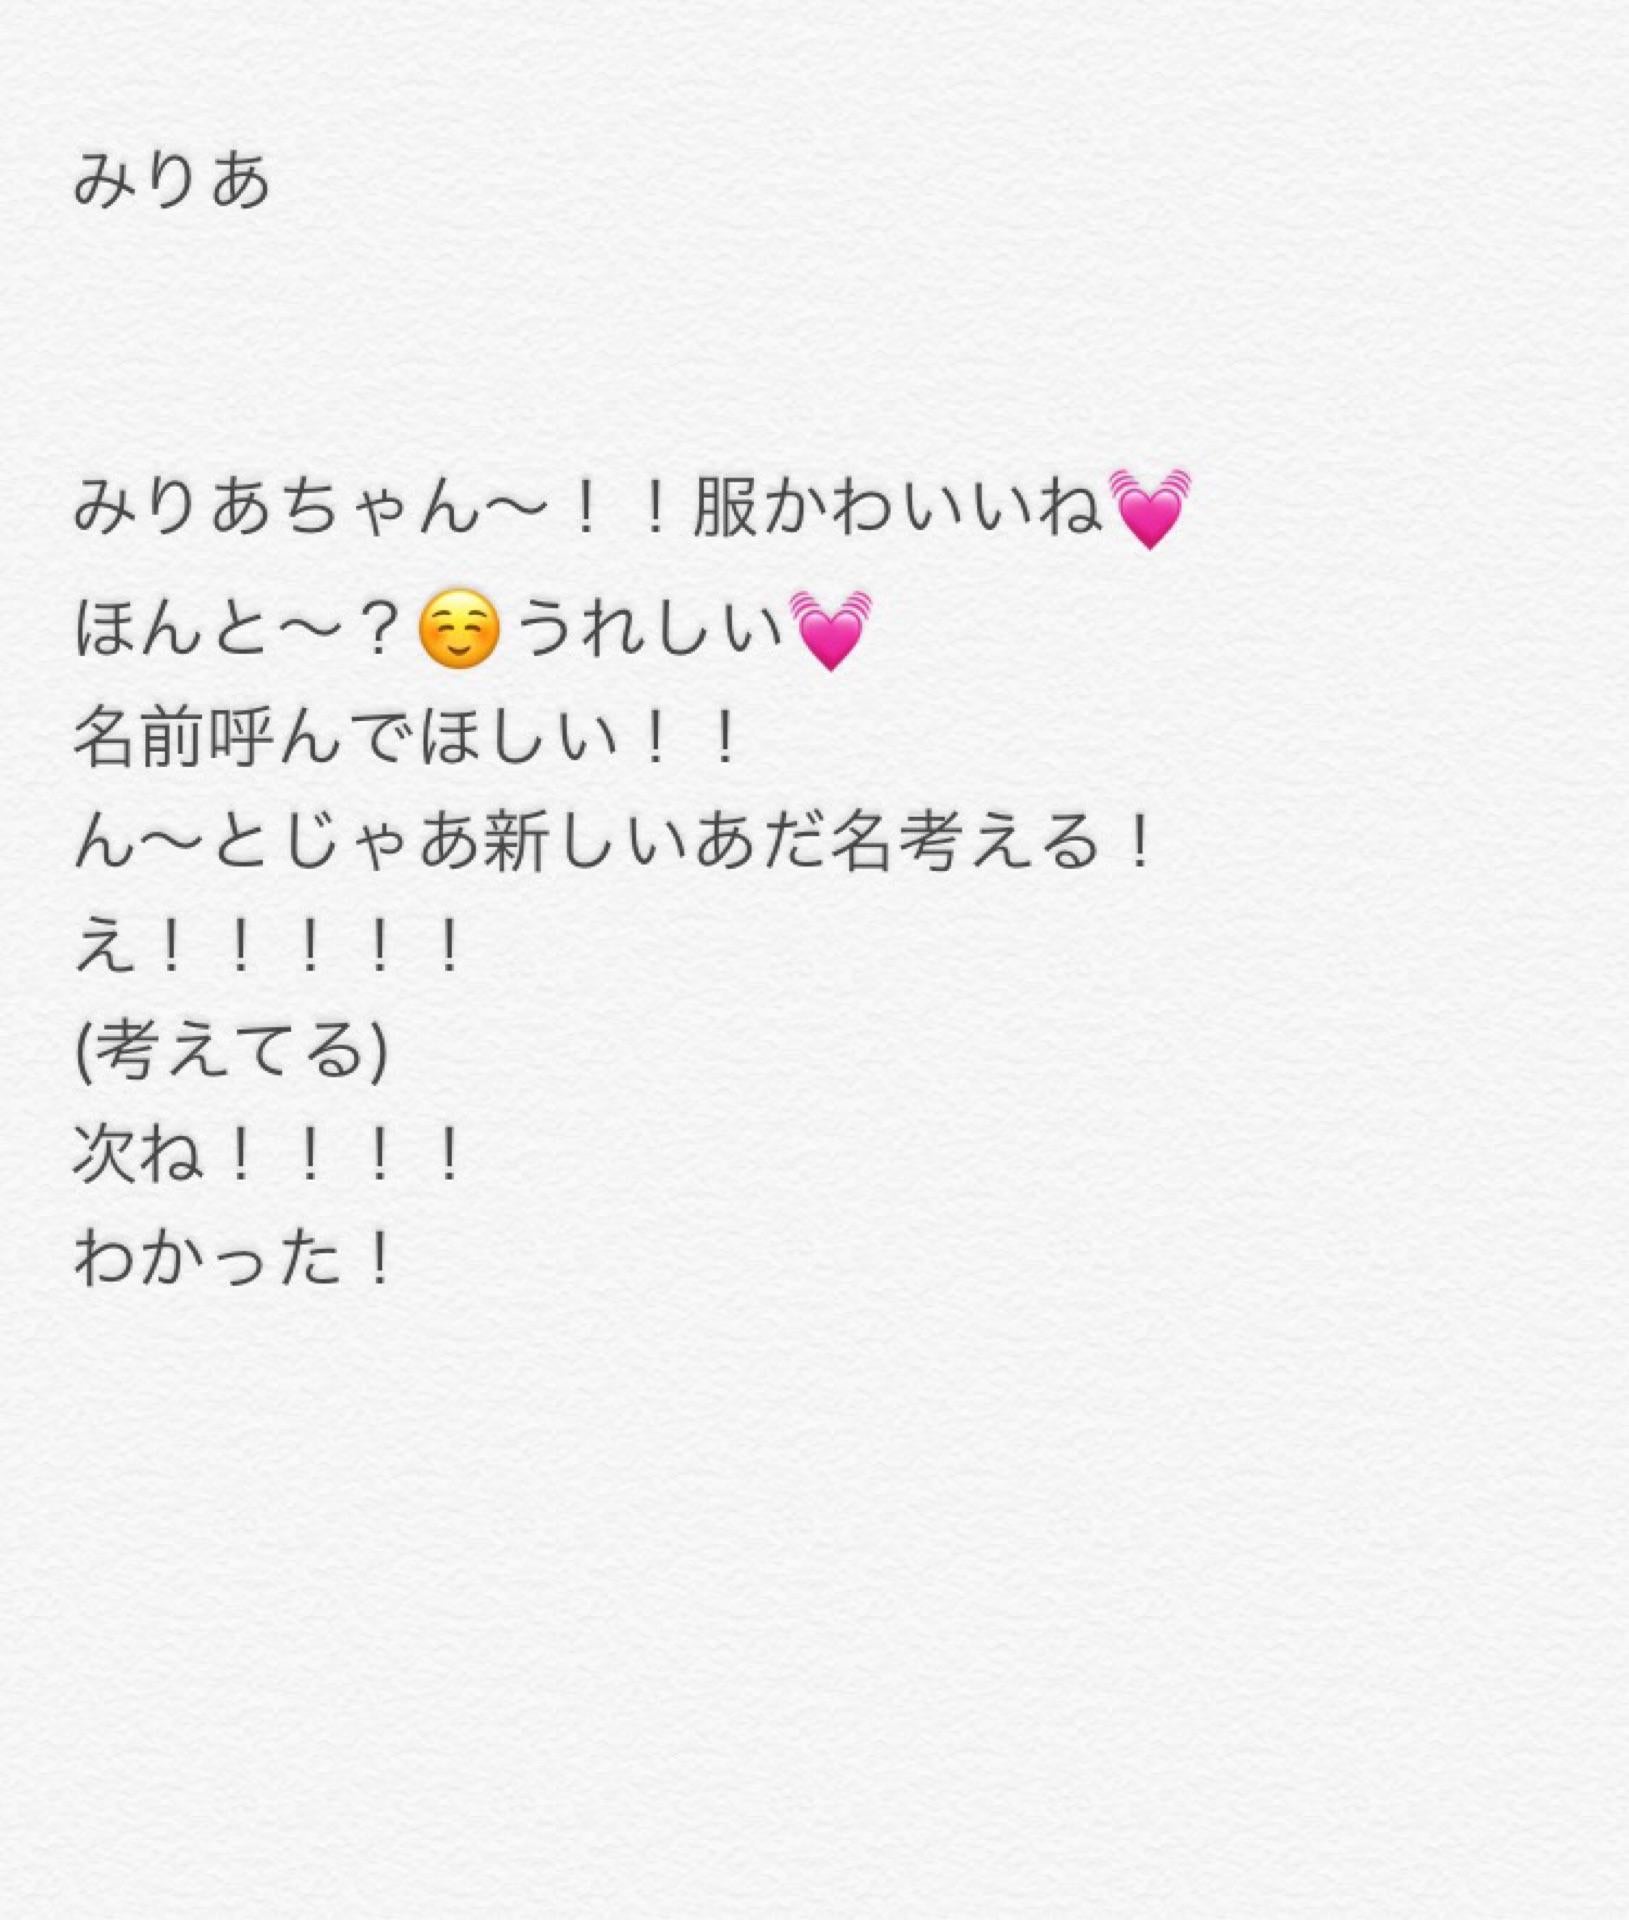 みりあ
みりあちゃん〜！！服かわいいね💓
ほんと〜？☺️うれしい💓
名前呼んでほしい！！
ん〜とじゃあ新しいあだ名考える！
え！！！！！
(考えてる)
次ね！！！！
わかった！